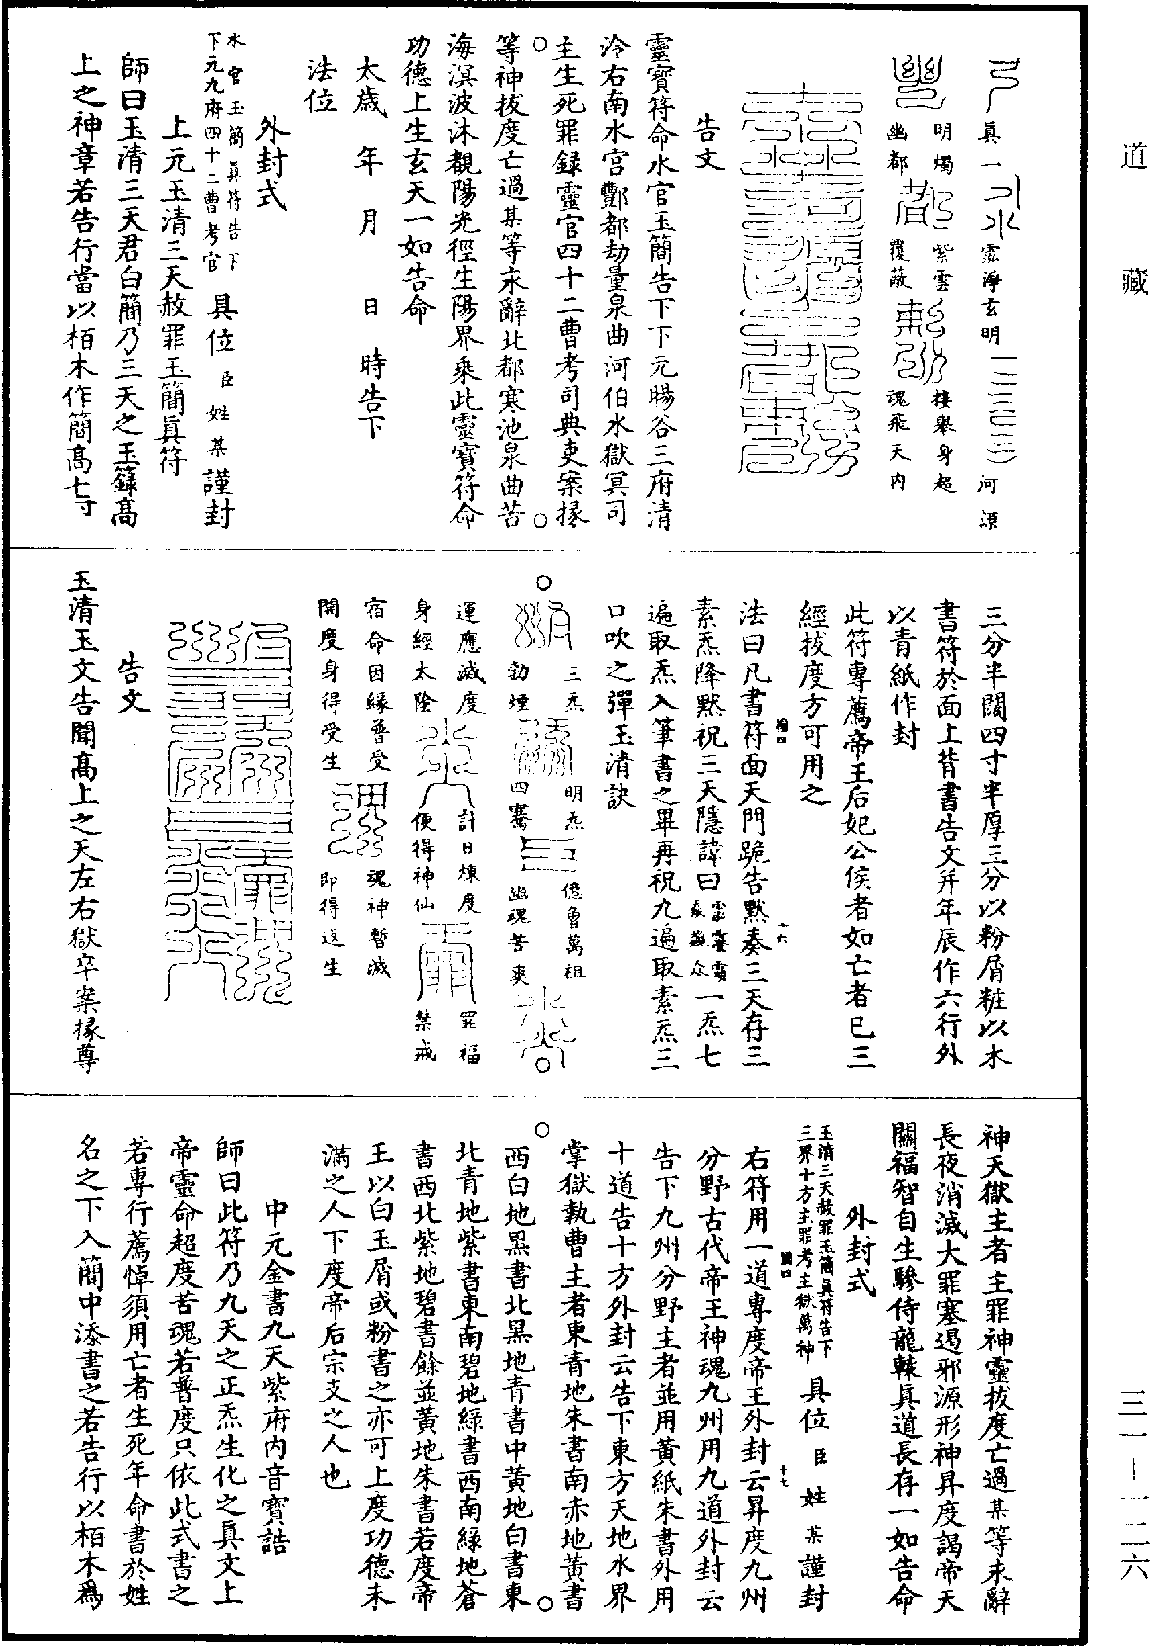 道藏
眞一 靈淨玄明 河源
明燭幽都 紫雲覆蔽 接舉身超魂飛天內
告文
靈寶符命水官玉簡告下下元暘谷三府清
泠右南水宫酆都劫量泉曲河伯水獄冥司
主生死罪録靈官四十二曹考司典吏案掾
等神拔度亡過某等永辭北都寒池泉曲苦
海溟波沐覩陽光徑生陽界乘此靈寶符命
功德上生玄天一如告命
太歲 年 月 日 時告下
法位
外封式
水官玉簡眞符告下下元九府四十二曹考官 具位 臣 姓 某 謹封
上元玉清三天赦罪玉簡眞符
師曰玉清三天君白簡乃三天之玉籙高
上之神章若告行當以栢木作簡高七寸
三分半闊四寸半厚三分以粉屑粧以木
書符於面上背書告文并年辰作六行外
以青紙作封
此符專薦帝王后妃公侯者如亡者已三
經拔度方可用之
法曰凡書符面天門跪告默奏三天存三
素炁降默祝三天隱諱曰 一炁七
遍取炁入筆書之畢再祝九遍取素炁三
口吹之彈玉清訣
三炁勃煙 明炁四騫 億魯萬祖幽魂苦爽
運應滅度身經太陰 計日煉度便得神仙 罪福禁戒
宿命因緣普受開度身得受生 魂神暫滅即得返生
告文
玉清玉文告聞高上之天左右獄卒案掾尊
神天獄主者主罪神靈拔度亡過某等永辭
長夜消滅大罪塞遏邪源形神昇度謁帝天
關福智自生驂侍龍軨眞道長存一如告命
外封式
玉清三天赦罪玉簡眞符告下三界十方主罪考主獄萬神 具位 臣 姓 某 謹封
右符用一道專度帝王外封云昇度九州
分野古代帝王神魂九州用九道外封云
告下九州分野主者並用黃紙朱書外用
十道告十方外封云告下東方天地水界
掌獄執曹主者東青地朱書南赤地黃書
西白地黒書北黒地青書中黃地白書東
北青地紫書東南碧地綠書西南綠地蒼
書西北紫地碧書餘並黃地朱書若度帝
王以白玉屑或粉書之亦可上度功德未
滿之人下度帝后宗支之人也
中元金書九天紫府内音寶誥
師曰此符乃九天之正炁生化之眞文上
帝靈命超度苦魂若普度只依此式書之
若專行薦悼須用亡者生死年命書於姓
名之下入簡中添書之若告行以栢木爲
三一—一二六